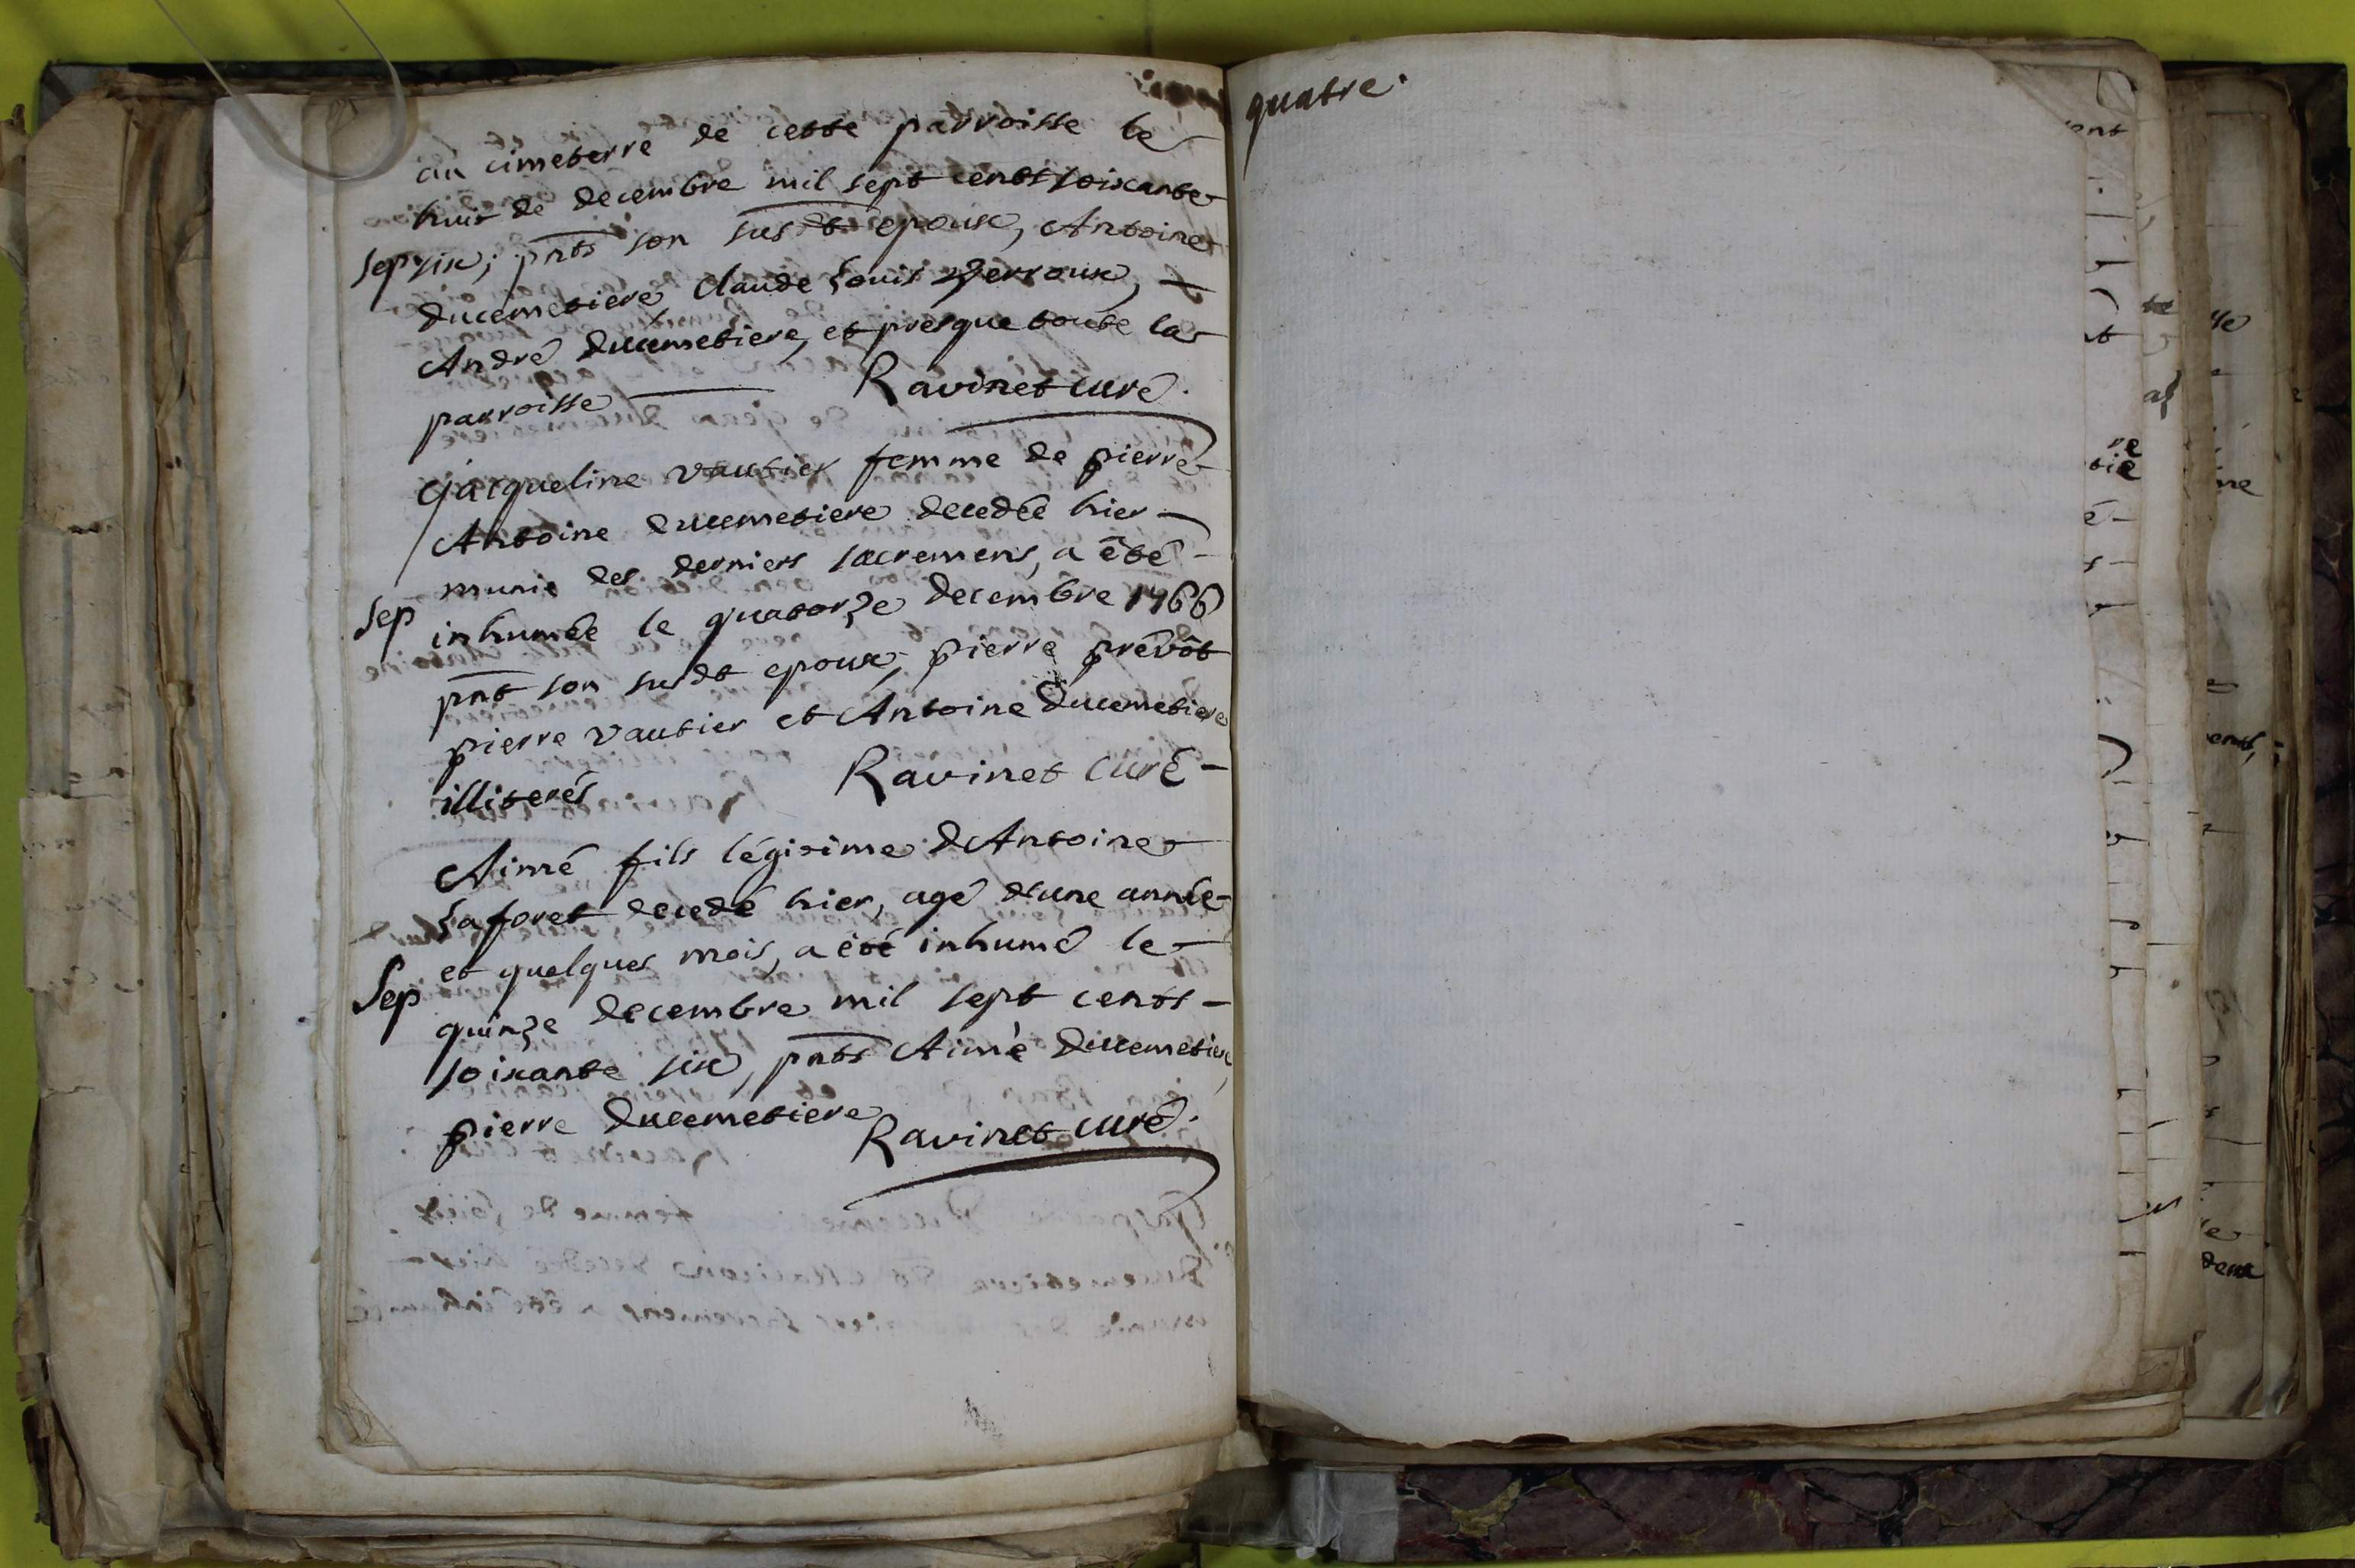 au cimeterre de cette parroisse le
huit de decembre mil sept cents soixante
Sep six; pnts son susdt epoux, Antoine
ducemetiere Claude Louis
André ducemetiere, et presque toute la
parroisse Ravinet curé.
Jacqueline vautier femme de pierre
Antoine ducemetiere decedée hier
munie des derniers sacremens, a êté
Sep inhumée le quatorze decembre 1766
pnt son susdt epoux, pierre prevôt
pierre vautier et Antoine ducemetiere
illiterés Ravinet curé
Aimé fils légitime d'Antoine
Laforet decedé hier, agé d'une année
et quelques mois, a été inhumé le
Sep quinze decembre mil sept cents
soixante six, pnts Aimé ducemetiere,
pierre ducemetiere Ravinet curé.
quatre.